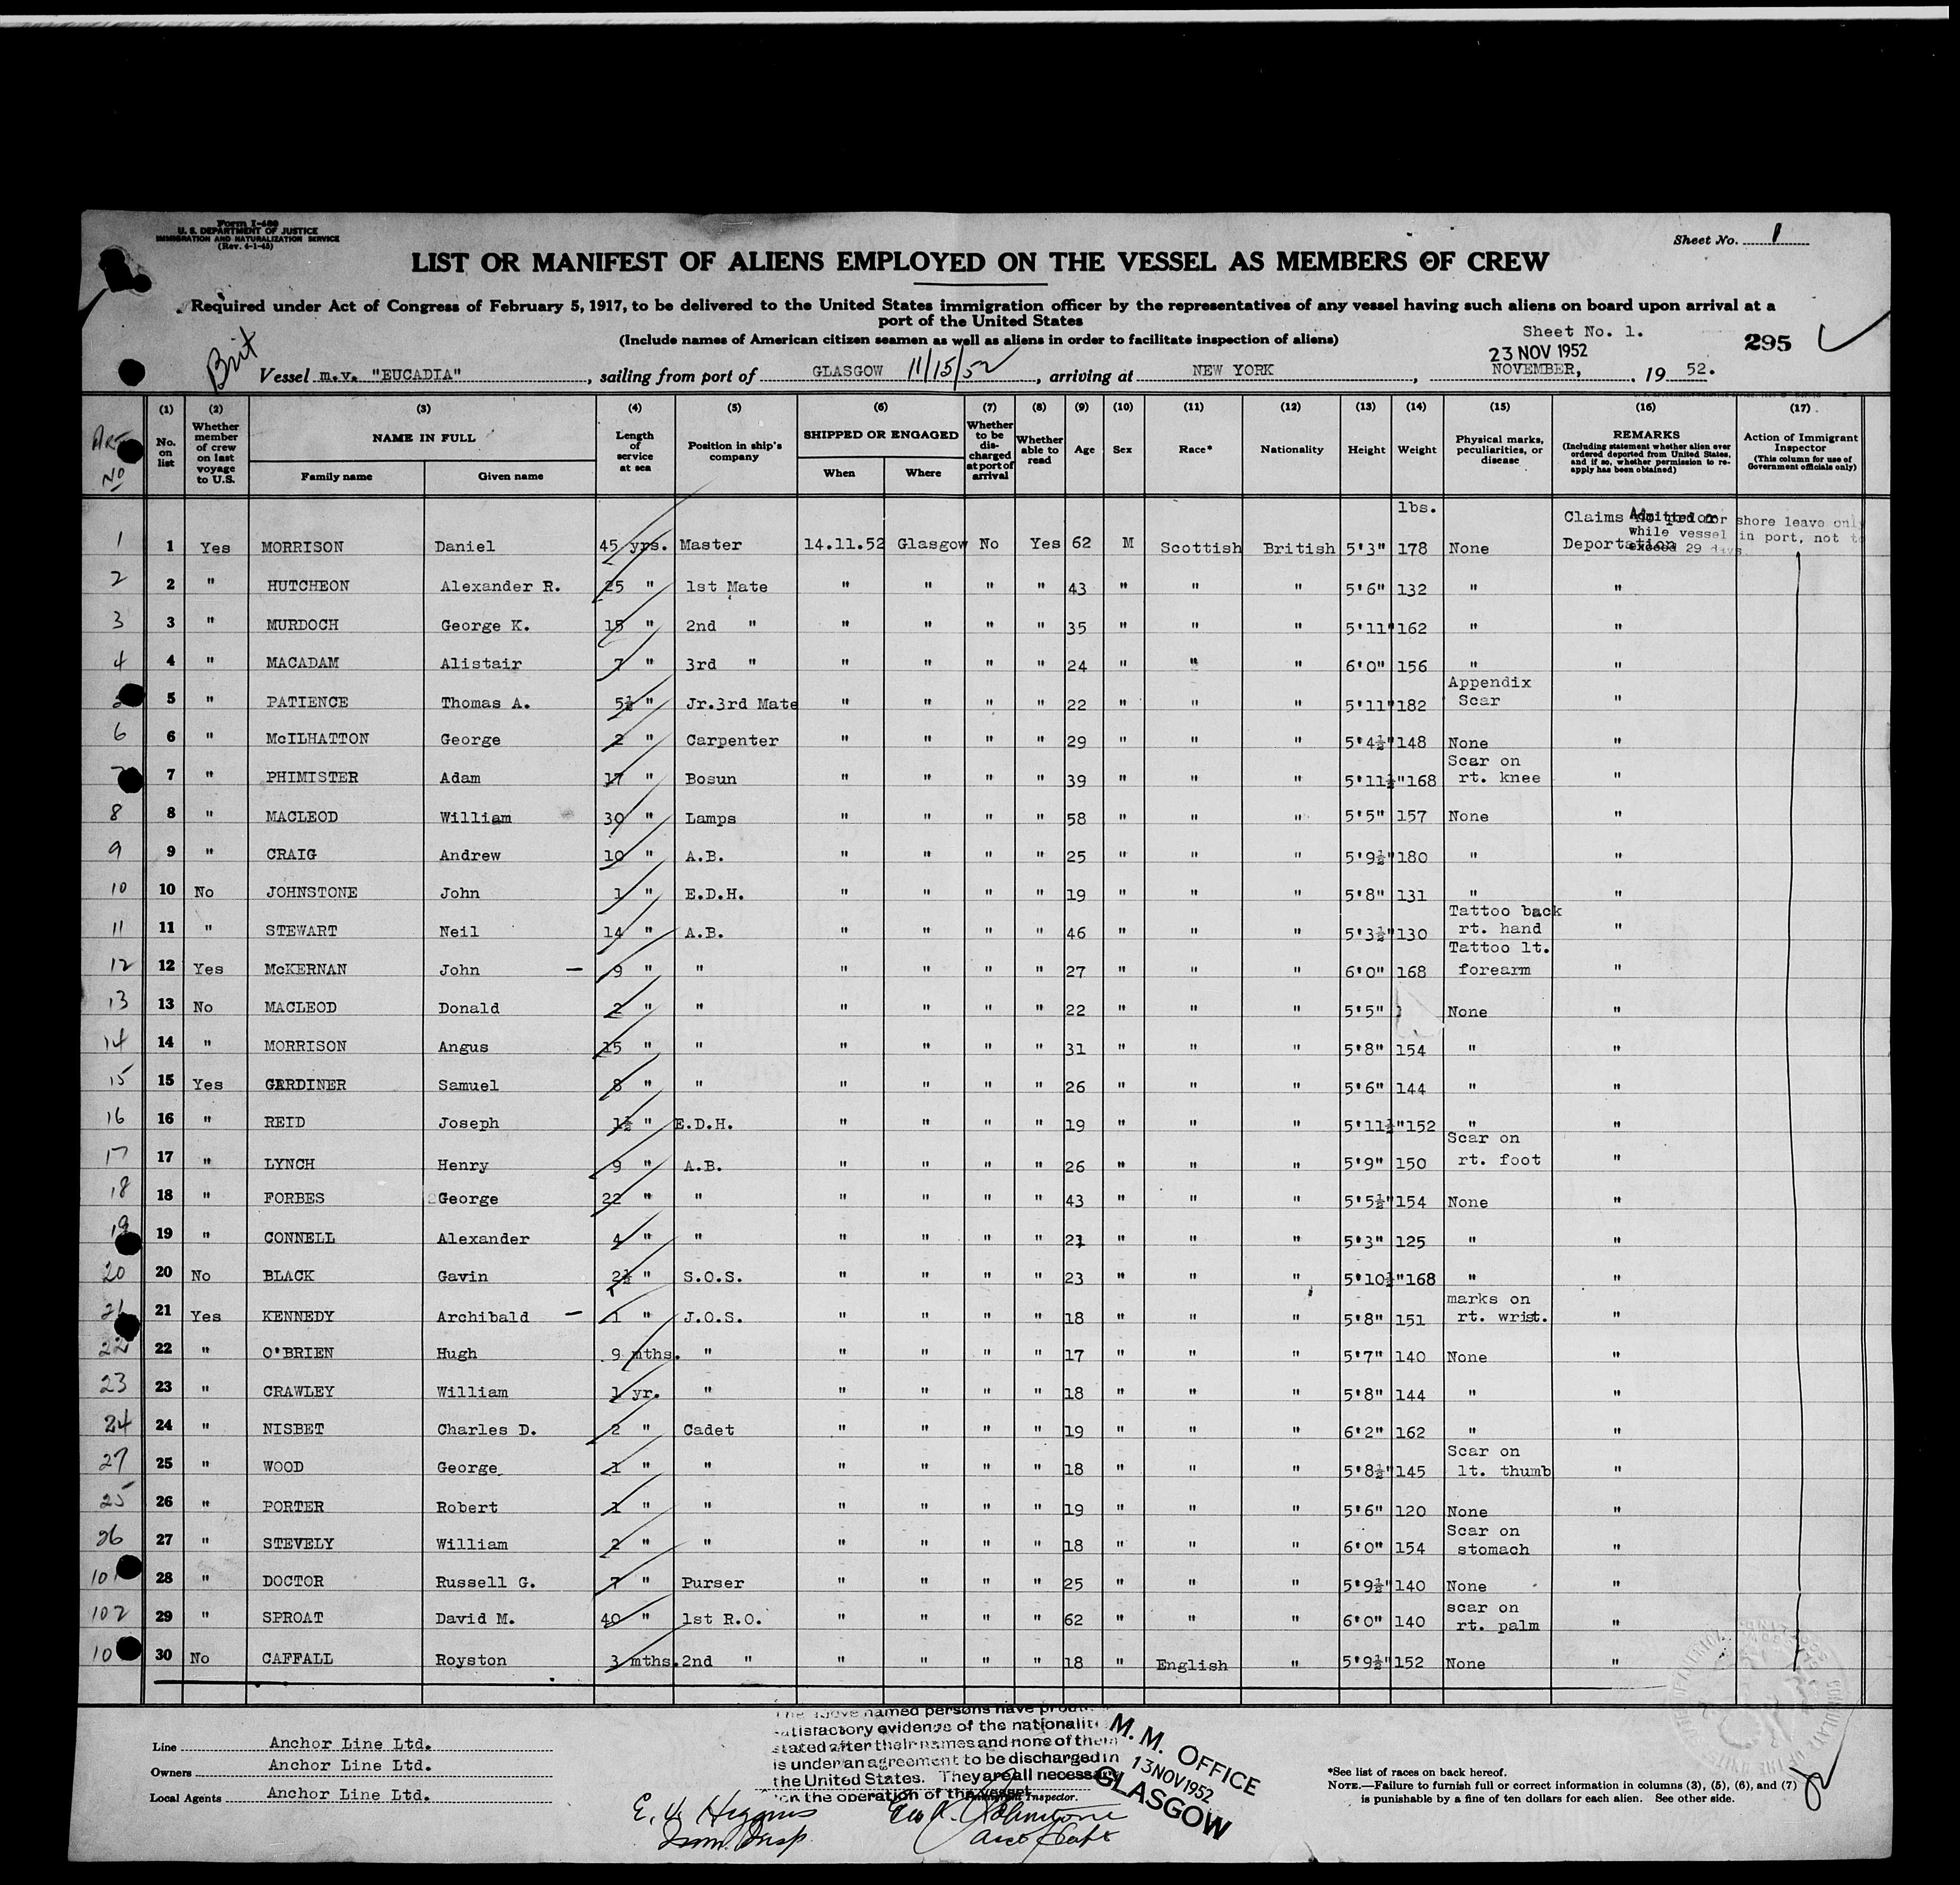 Form I-480
U. S. DEPARTMENT OF JUSTICE
IMMIGRATION AND NATURALIZATION SERVICE
(Rev. 4-1-45)
Sheet No. 1
LIST OR MANIFEST OF ALIENS EMPLOYED ON THE VESSEL AS MEMBERS OF CREW
Required under Act of Congress of February 5, 1917, to be delivered to the United States immigration officer by the representatives of any vessel having such aliens on board upon arrival at a
port of the United States
(Include names of American citizen seamen as well as aliens in order to facilitate inspection of aliens)
Sheet No. 1.
295
Brit
23 NOV 1952
Vessel m.v. "EUCADIA", sailing from port of GLASGOW 11/15/52, arriving at NEW YORK, NOVEMBER, 19 52.
(1) (2) (3) (4) (5) (6) (7) (8) (9) (10) (11) (12) (13) (14) (15) (16) (17)
No. on list
Whether member of crew on last voyage to U.S.
NAME IN FULL
Family name
Given name
Length of service at sea
Position in ship's company
SHIPPED OR ENGAGED
When
Where
Whether to be discharged at port of arrival
Whether able to read
Age
Sex
Race*
Nationality
Height
Weight
Physical marks, peculiarities, or disease
REMARKS
(Including statement whether alien ever ordered deported from United States, and if so, whether permission to re-apply has been obtained)
Action of Immigrant Inspector
(This column for use of Government officials only)
lbs.
Admitted for shore leave only
while vessel in port, not to
exceed 29 days.
1 1 Yes MORRISON Daniel 45 yrs. Master 14.11.52 Glasgow No Yes 62 M Scottish British 5'3" 178 None Claims Deportation
2 2 " HUTCHEON Alexander R. 25 " 1st Mate " " " " 43 " " " 5'6" 132 " "
3 3 " MURDOCH George K. 15 " 2nd " " " " " 35 " " " 5'11" 162 " "
4 4 " MACADAM Alistair 7 " 3rd " " " " " 24 " " " 6'0" 156 " "
5 " PATIENCE Thomas A. 5½ " Jr.3rd Mate " " " " 22 " " " 5'11" 182 Appendix Scar "
6 6 " McILHATTON George 2 " Carpenter " " " " 29 " " " 5'4½" 148 None "
7 7 " PHIMISTER Adam 17 " Bosun " " " " 39 " " " 5'11½" 168 Scar on rt. knee "
8 8 " MACLEOD William 30 " Lamps " " " " 58 " " " 5'5" 157 None "
9 9 " CRAIG Andrew 10 " A.B. " " " " 25 " " " 5'9½" 180 " "
10 10 No JOHNSTONE John 1 " E.D.H. " " " " 19 " " " 5'8" 131 " "
11 11 " STEWART Neil 14 " A.B. " " " " 46 " " " 5'3½" 130 Tattoo back rt. hand "
12 12 Yes McKERNAN John — 9 " " " " " " 27 " " " 6'0" 168 Tattoo lt. forearm "
13 13 No MACLEOD Donald 2 " " " " " " 22 " " " 5'5" None "
14 14 " MORRISON Angus 15 " " " " " " 31 " " " 5'8" 154 " "
15 15 Yes GARDINER Samuel 8 " " " " " " 26 " " " 5'6" 144 " "
16 16 " REID Joseph 1½ " E.D.H. " " " " 19 " " " 5'11½" 152 " "
17 17 " LYNCH Henry 9 " A.B. " " " " 26 " " " 5'9" 150 Scar on rt. foot "
18 18 " FORBES George 22 " " " " " " 43 " " " 5'5½" 154 None "
19 19 " CONNELL Alexander 4 " " " " " " 23 " " " 5'3" 125 " "
20 20 No BLACK Gavin 2½ " S.O.S. " " " " 23 " " " 5'10½" 168 " "
21 21 Yes KENNEDY Archibald — 1 " J.O.S. " " " " 18 " " " 5'8" 151 marks on rt. wrist. "
22 22 " O'BRIEN Hugh 9 mths. " " " " " 17 " " " 5'7" 140 None "
23 23 " CRAWLEY William 1 yr. " " " " " 18 " " " 5'8" 144 " "
24 24 " NISBET Charles D. 2 " Cadet " " " " 19 " " " 6'2" 162 " "
27 25 " WOOD George 1 " " " " " " 18 " " " 5'8½" 145 Scar on lt. thumb "
25 26 " PORTER Robert 1 " " " " " " 19 " " " 5'6" 120 None "
26 27 " STEVELY William 2 " " " " " " 18 " " " 6'0" 154 Scar on stomach "
101 28 " DOCTOR Russell G. 7 " Purser " " " " 25 " " " 5'9½" 140 None "
102 29 " SPROAT David M. 40 " 1st R.O. " " " " 62 " " " 6'0" 140 scar on rt. palm "
10 30 No CAFFALL Royston 3 mths. 2nd " " " " " 18 " English " 5'9½" 152 None "
Line Anchor Line Ltd.
Owners Anchor Line Ltd.
Local Agents Anchor Line Ltd.
The above named persons have
satisfactory evidence of the
stated after their names and none of them
is under an agreement to be discharged in
the United States. They are all necessary
on the operation of the vessel
Inspector.
M. M. OFFICE
13 NOV 1952
GLASGOW
E. Higgins
Imm. Insp.
Geo. Johnstone
*See list of races on back hereof.
NOTE.—Failure to furnish full or correct information in columns (3), (5), (6), and (7)
is punishable by a fine of ten dollars for each alien. See other side.